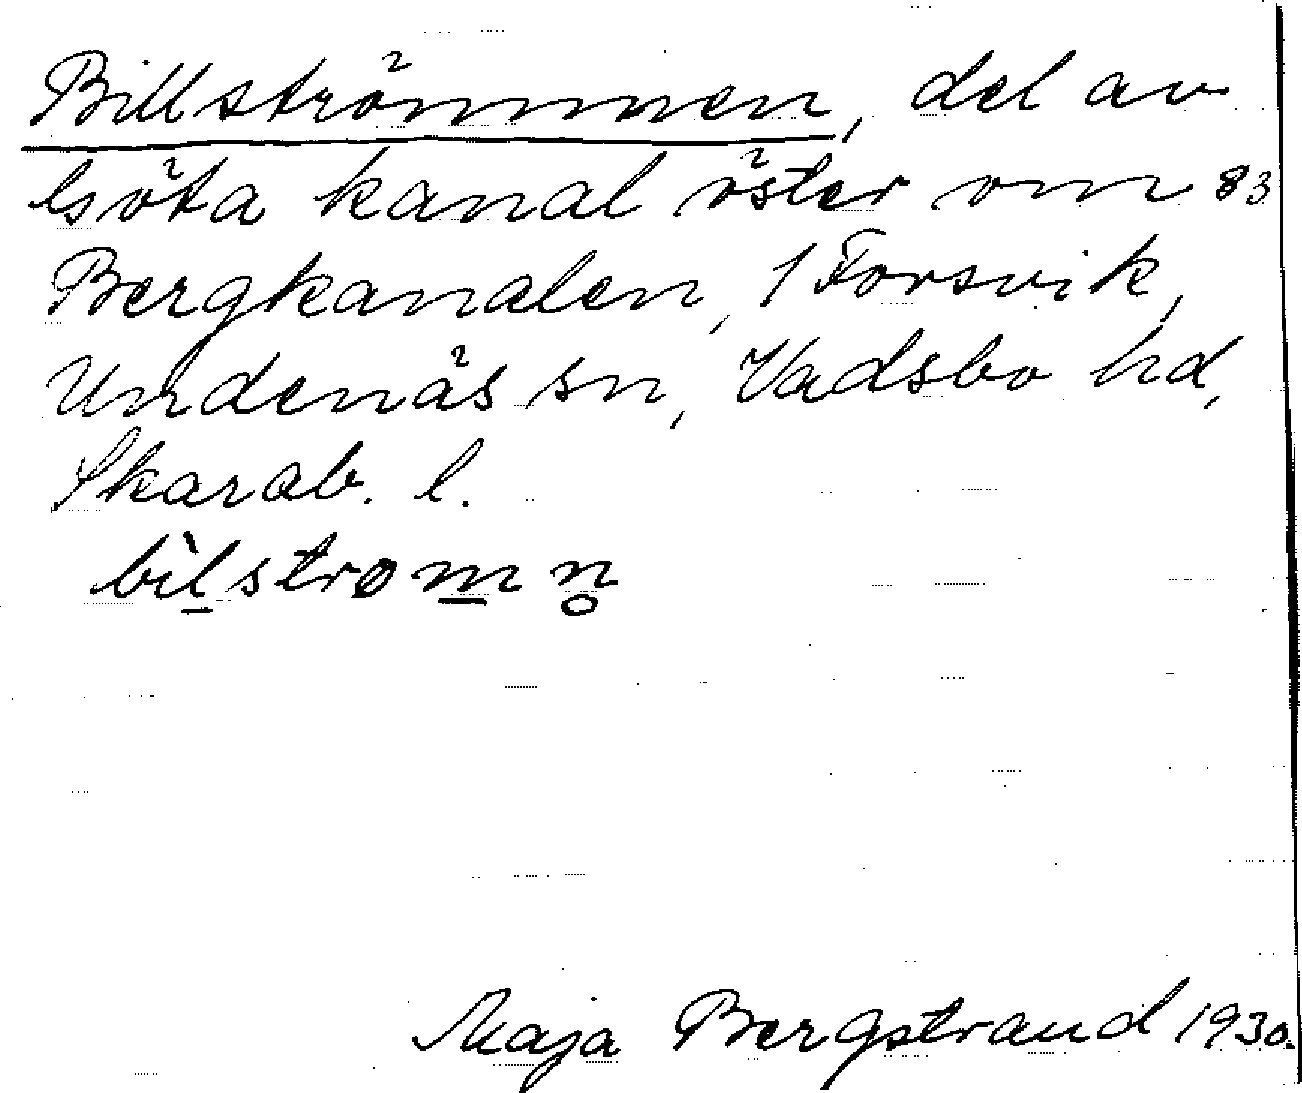 Billströmmen, del av
Göta kanal öster om 83
Bergkanalen, 1 Forsvik,
Undenäs sn, Vadsbo hd,
Skarab. l.
bìl̲strøm̲n̥
Maja Bergstrand 1930.